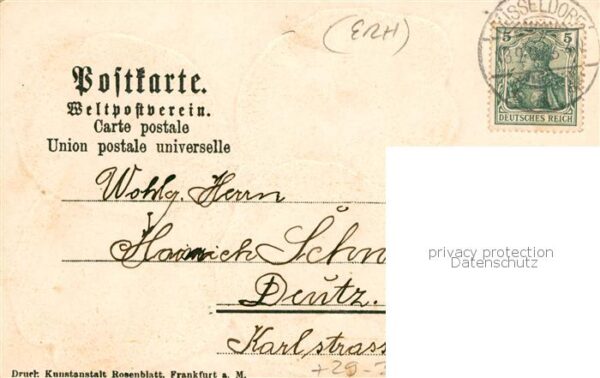 (ERH)
DÜSSELDORF
5 5
DEUTSCHES REICH
Postkarte.
Weltpostverein.
Carte postale
Union postale universelle
Wohlg. Herrn
Heinrich Schn
Deutz.
Karlstrass
privacy protection
Datenschutz
Druck Kunstanstalt Rosenblatt, Frankfurt a. M.